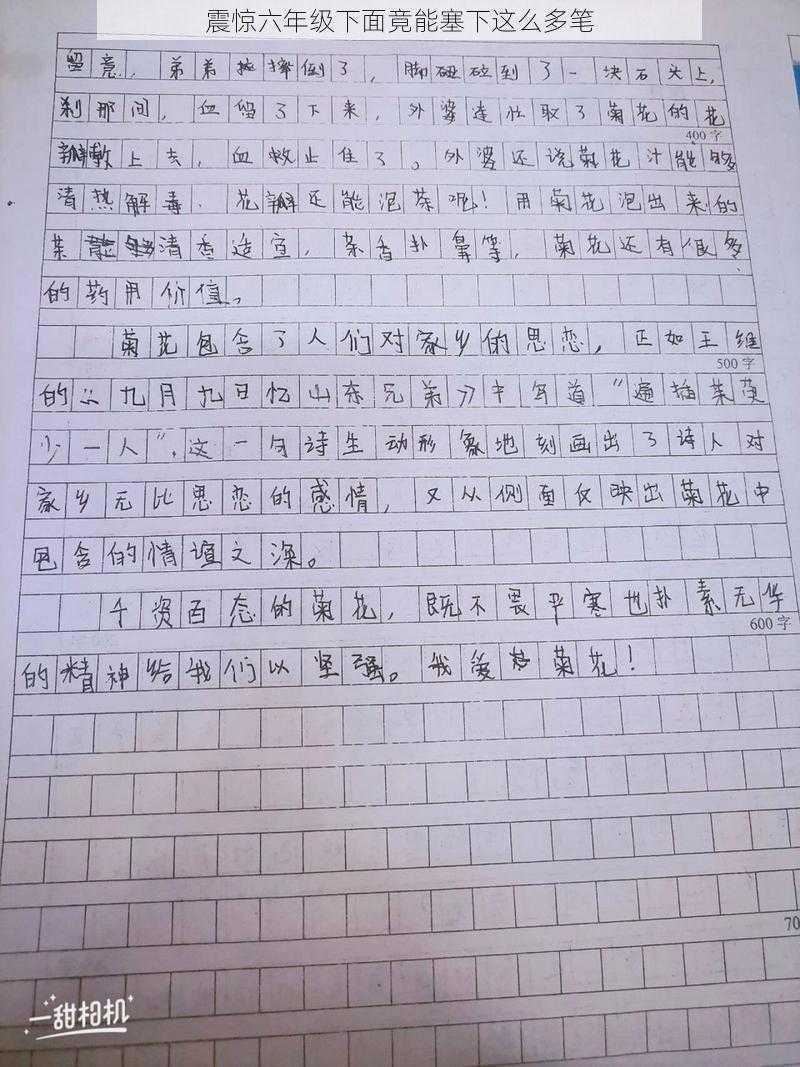 震惊六年级下面竟能塞下这么多笔
留意，弟弟摔倒了，脚碰到了一块石头上，
刹那间，血留了下来，外婆连忙取了菊花的花
400字
瓣敷上去，血救止住了。外婆还说菊花汁能够
清热解毒．花瓣还能泡茶呢！用菊花泡出来的
茶清香适宜，茶香扑鼻等，菊花还有很多
的药用价值。
菊花包含了人们对家乡的思恋，正如王维
500字
的《九月九日忆山东兄弟》中写道“遍插茱萸
少一人”．这一句诗生动形象地刻画出了诗人对
家乡无比思恋的感情，又从侧面反映出菊花中
包含的情谊之深。
千资百态的菊花，既不畏严寒也扑素无华
600字
的精神给我们以坚强。我爱菊花！
70
一甜相机